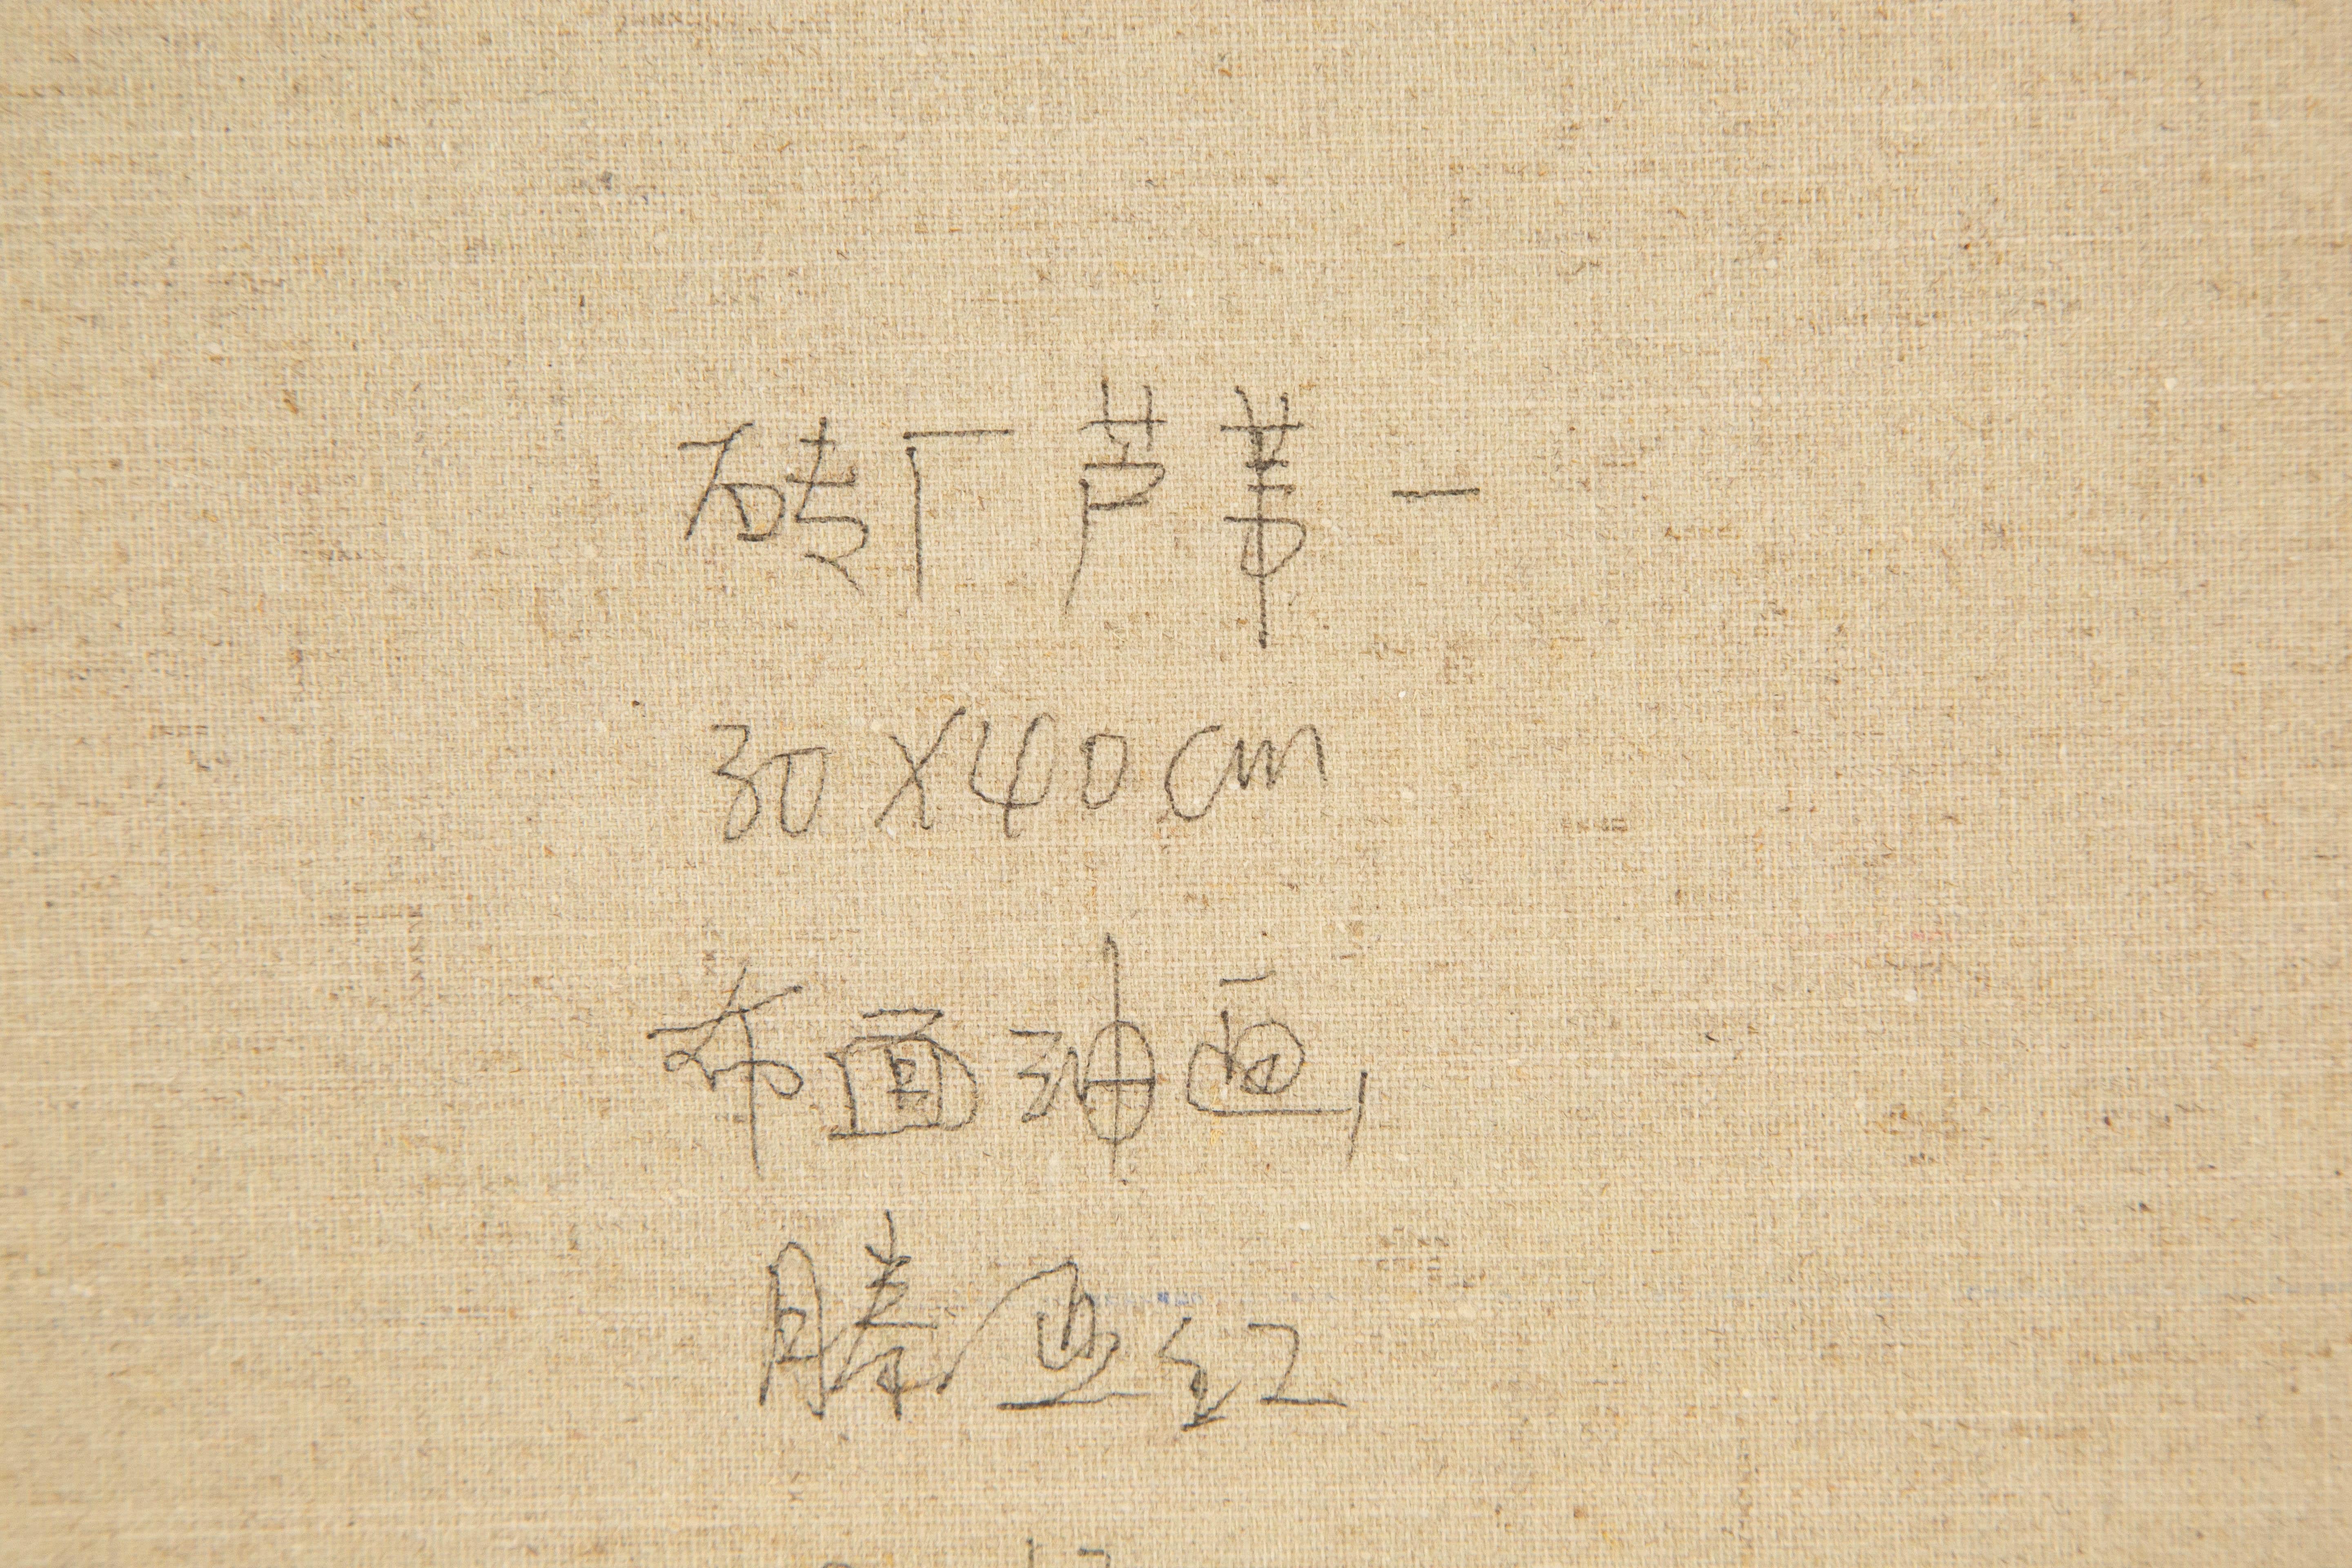 砖厂芦苇一
30X40cm
布面油画
滕亚红